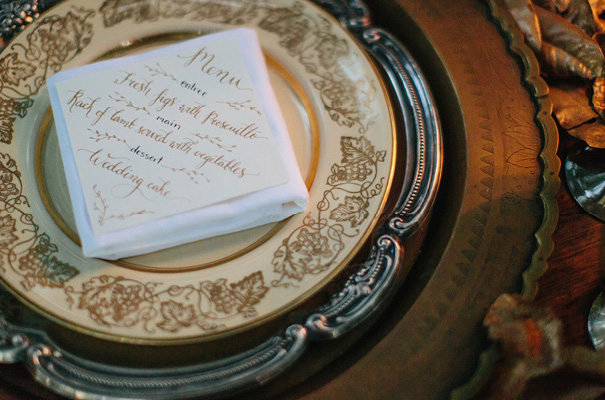 Menu
entree
Fresh figs with Prosciutto
main
Rack of lamb served with vegetables
dessert
Wedding cake